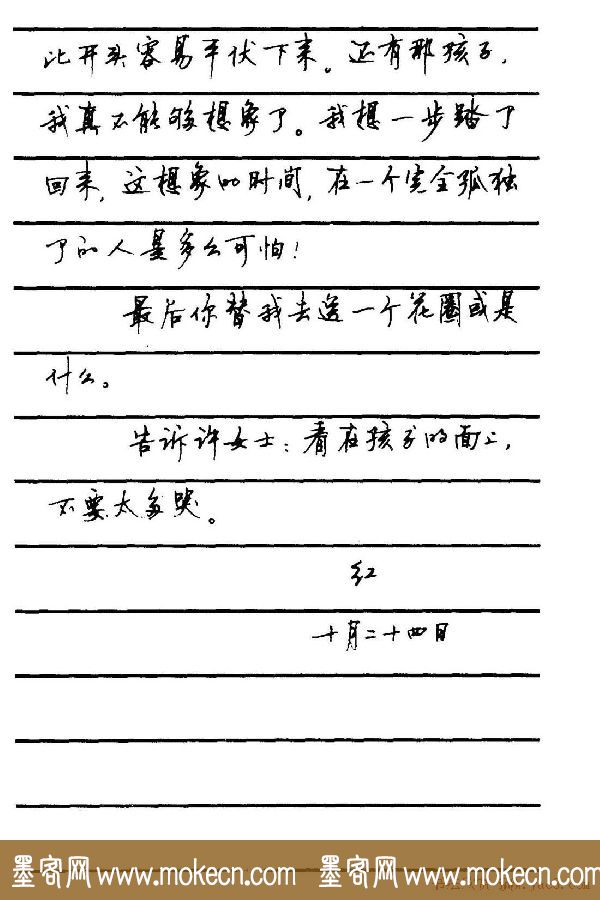 比开头容易平伏下来。还有那孩子，
我真不能够想象了。我想一步踏了
回来，这想象的时间，在一个完全孤独
了的人是多么可怕！
最后你替我去送一个花圈或是
什么。
告诉许女士：看在孩子的面上，
不要太多哭。
红
十月二十四日
墨客网 www.mokecn.com 墨客网 www.mokecn.com